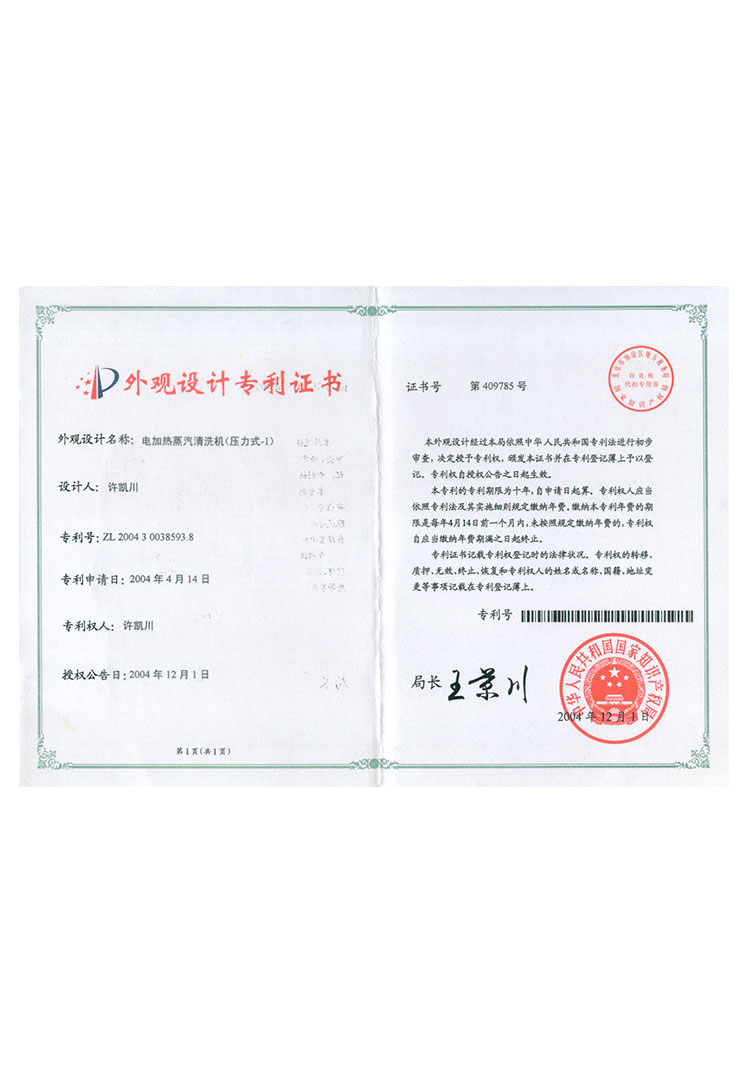 外观设计专利证书
外观设计名称：电加热蒸汽清洗机(压力式-1)
设计人：许凯川
专利号：ZL 2004 3 0038593.8
专利申请日：2004 年 4 月 14 日
专利权人：许凯川
授权公告日：2004 年 12 月 1 日
第 1 页(共 1 页)
证书号 第 409785 号
北京市海淀区地方税务局
印花税
代扣专用章
国家知识产权局
本外观设计经过本局依照中华人民共和国专利法进行初步
审查，决定授予专利权，颁发本证书并在专利登记簿上予以登
记。专利权自授权公告之日起生效。
本专利的专利期限为十年，自申请日起算。专利权人应当
依照专利法及其实施细则规定缴纳年费。缴纳本专利年费的期
限是每年4月14日前一个月内，未按照规定缴纳年费的，专利权
自应当缴纳年费期满之日起终止。
专利证书记载专利权登记时的法律状况。专利权的转移、
质押、无效、终止、恢复和专利权人的姓名或名称、国籍、地址变
更等事项记载在专利登记簿上。
专利号
局长 王景川
中华人民共和国国家知识产权局
2004 年 12 月 1 日